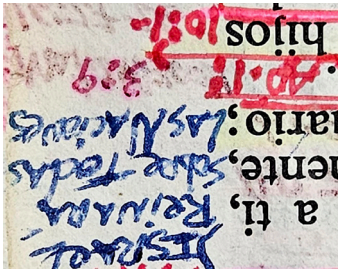 a ti,
mente,
nario;
hijos
ISRAEL
Reinara
sobre Todas
Las Naciones
3:9